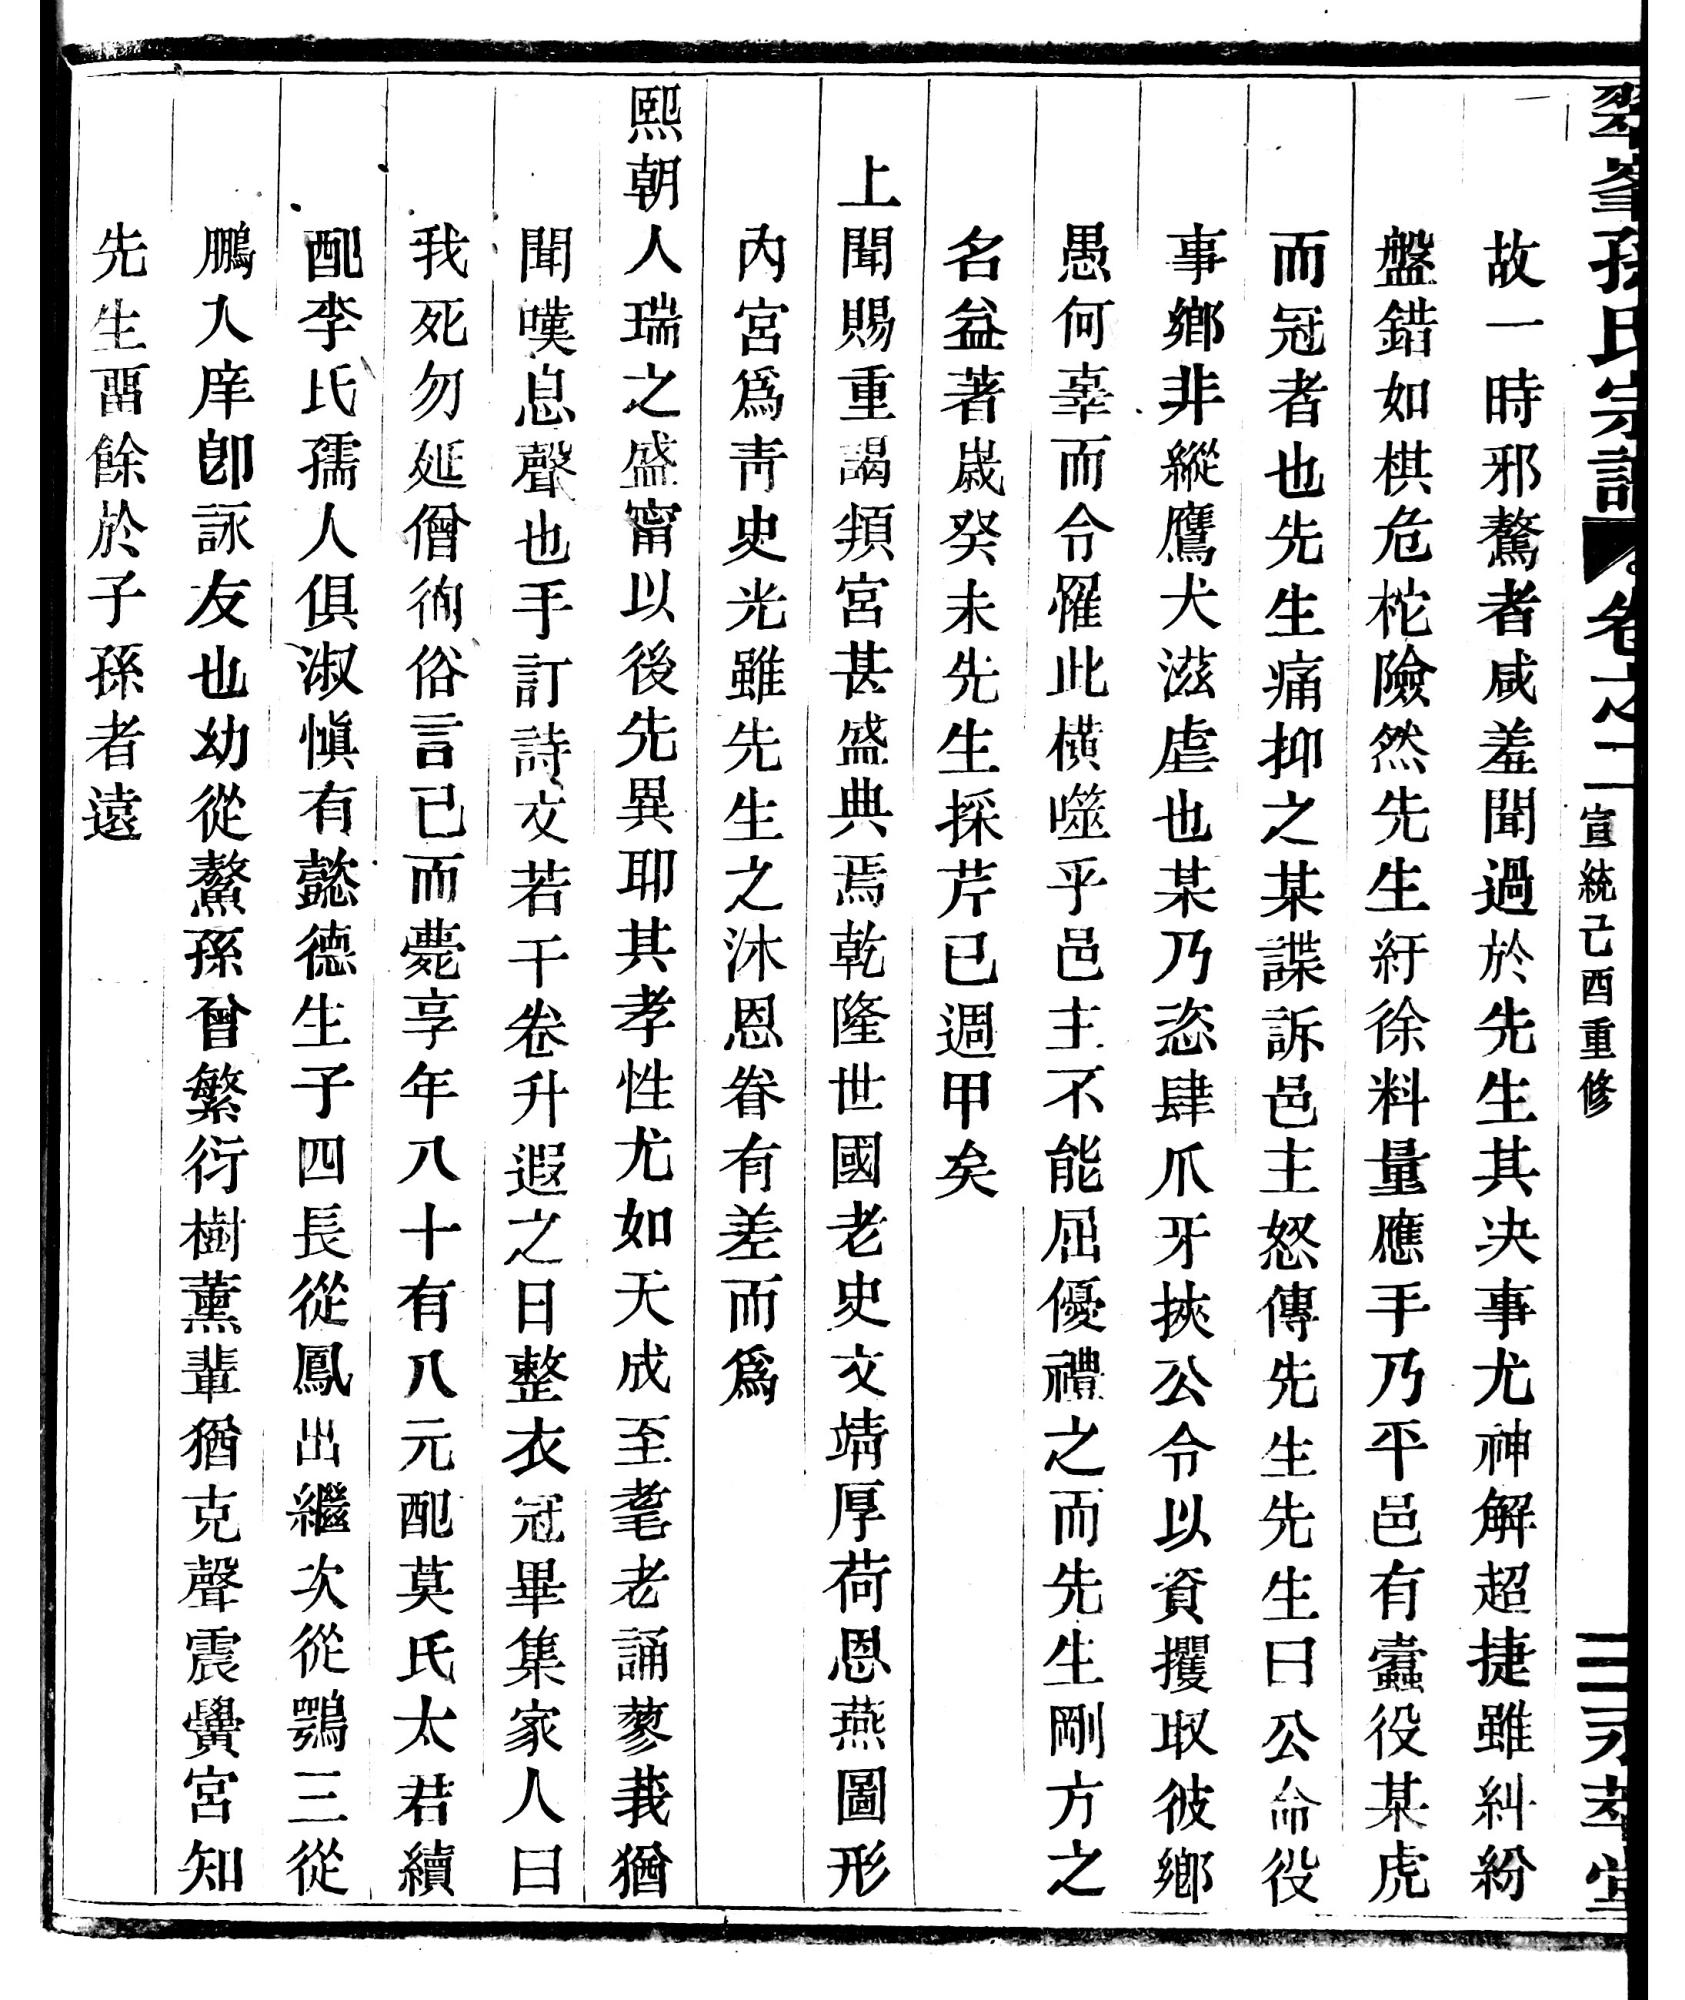 翠峯孫氏宗譜 卷之二 宣統己酉重修 三 永萃堂
故一時邪驁者咸羞聞過於先生其决事尤神解超捷雖糾紛
盤錯如棋危柁險然先生紆徐料量應手乃平邑有蠹役某虎
而冠者也先生痛抑之某諜訴邑主怒傳先生先生曰公命役
事鄉非縱鷹犬滋虐也某乃恣肆爪牙挾公令以資攫取彼鄉
愚何辜而令罹此橫噬乎邑主不能屈優禮之而先生剛方之
名益著嵗癸未先生採芹已週甲矣
上聞賜重謁頖宮甚盛典焉乾隆世國老史文靖厚荷恩燕圖形
內宮爲靑史光雖先生之沐恩眷有差而爲
熙朝人瑞之盛甯以後先異耶其孝性尤如天成至耄老誦蓼莪猶
聞嘆息聲也手訂詩文若干卷升遐之日整衣冠畢集家人曰
我死勿延僧徇俗言已而薨享年八十有八元配莫氏太君續
配李氏孺人俱淑愼有懿德生子四長從鳳出繼次從鶚三從
鵬入庠卽詠友也幼從鰲孫曾繁衍樹薰輩猶克聲震黌宮知
先生畱餘於子孫者遠